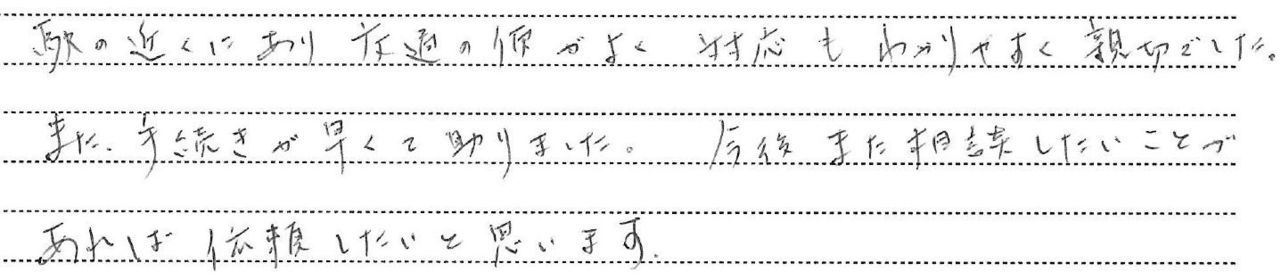 駅の近くにあり交通の便がよく 対応もわかりやすく親切でした。
また、手続きが早くて助りました。 今後また相談したいことが
あれば依頼したいと思います。